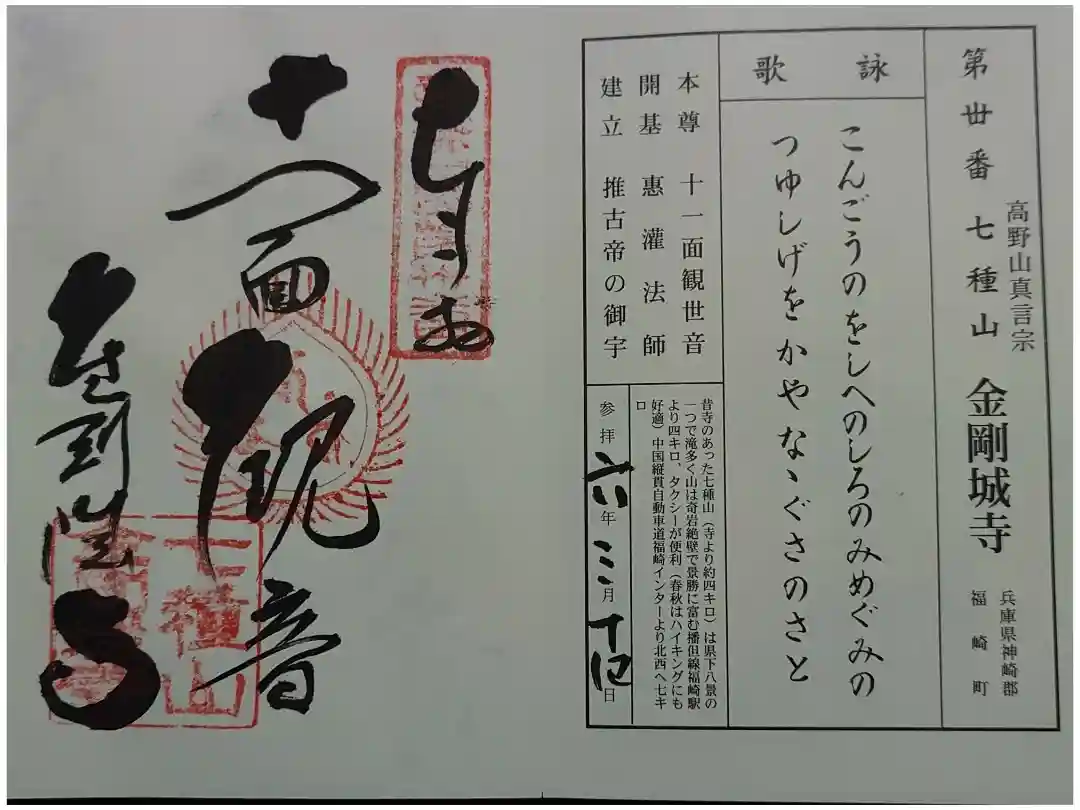 高野山真言宗
第丗番 七種山 金剛城寺
兵庫県神崎郡
福崎町
詠歌
こんごうのをしへのしろのみめぐみの
つゆしげをかやなゝぐさのさと
本尊 十一面観世音
開基 惠灌法師
建立 推古帝の御宇
昔寺のあった七種山（寺より約四キロ）は県下八景の
一つで滝多く山は奇岩絶壁で景勝に富む播但線福崎駅
より四キロ、タクシーが便利（春秋はハイキングにも
好適）中国縦貫自動車道福崎インターより北西へ七キ
ロ
参拝 六年 三月 十四日
十一面観音
金剛城寺
七種山